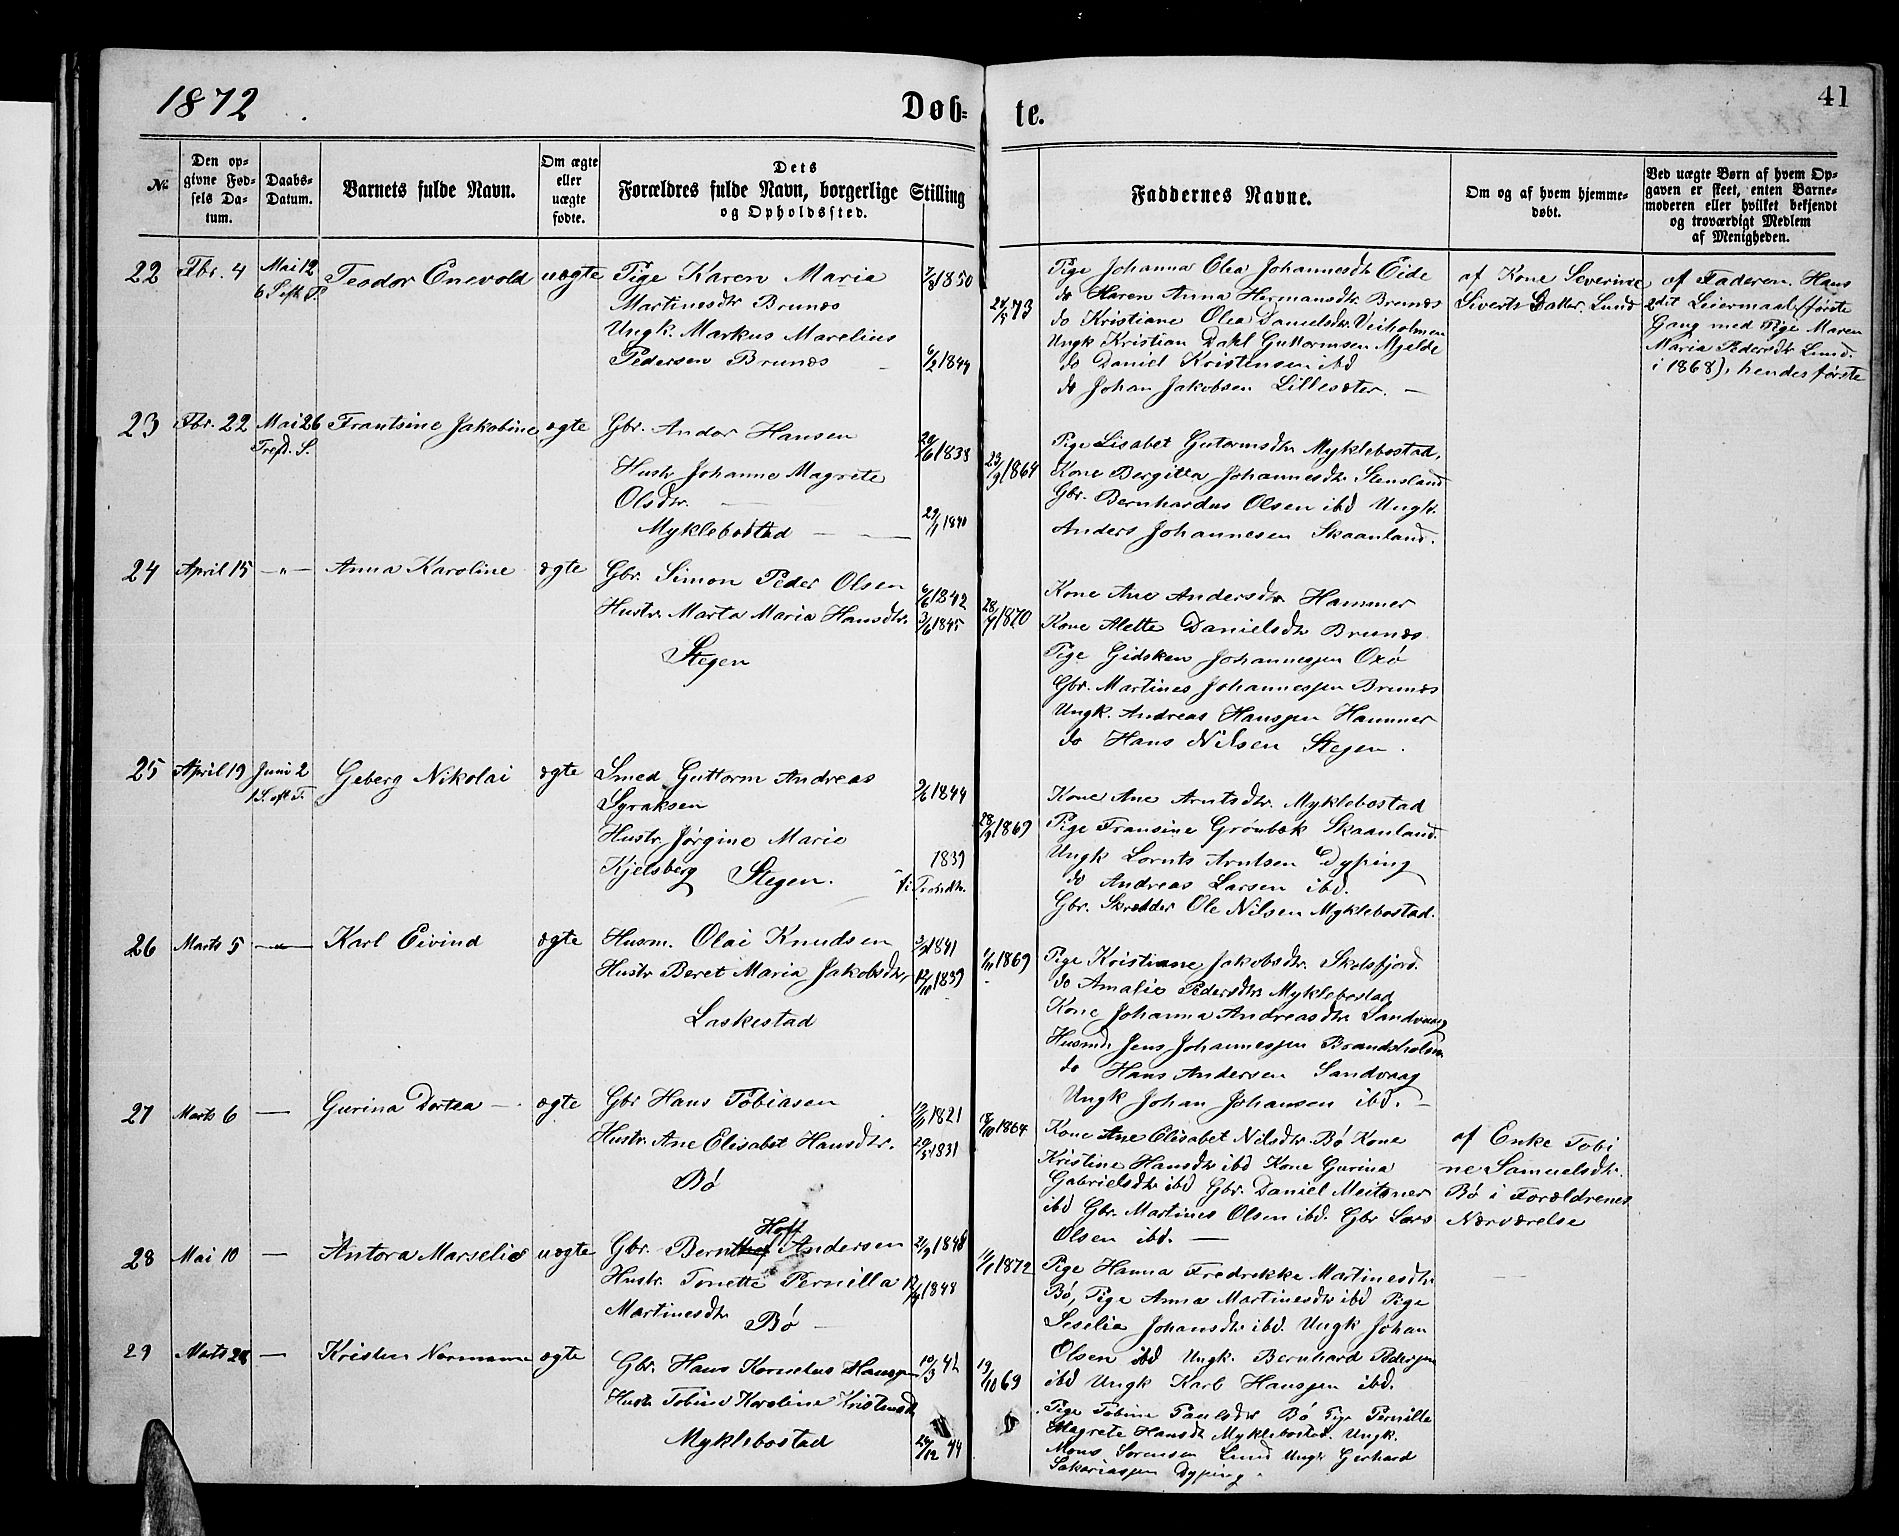 1872
Døb-
te.
41
№
Den op-
givne Fød-
sels Da-
tum.
Daabs-
Datum.
Barnets fulde Navn.
Om ægte
eller
uægte
fødte.
Dets
Forældres fulde Navn, borgerlige Stilling
og Opholdssted.
Faddernes Navne.
Om og af hvem hjemme-
døbt.
Ved uægte Børn af hvem Op-
gaven er skeet, enten Barne-
moderen eller hvilket bekjendt
og troværdigt Medlem
af Menigheden.
22 Fbr. 4 Mai 12 Teodor Enevold uægte Pige Karen Maria 1850
Martinesdtr Brunæs
Ungk. Markus Marelius
Pedersen Brunæs 6/2 1844
73
Pige Johanna Olea Johannesdtr Eide
do Karen Anna Hermansdtr. Brunæs
do Kristiane Olea Danielsdtr. Veiholmen
Ungk Kristian Dahl Guttormsen Mjelde
do Daniel Kristensen ibd
do Johan Jakobsen Lillesæter.
af Kone Severine
Siverts Lund
af Faderen. Hans
2det Leiermaal (første
Gang med Pige Maren
Maria Pedersdtr Lund
i 1868), hendes første
23 Fbr. 22 Mai 26 Frantsine Jakobine ægte Gbr. Andor Hansen 29/6 1838
Tref. S.
Hustr Johanne Magrete
Olsdtr.
Myklebostad 29/1 1840
23/9 1864
Pige Lisabet Gutormsdtr. Myklebostad,
Kone Bergitta Johannesdtr Stensland
Gbr. Bernhardus Olsen ibd Ungk.
Anders Johannesen Skaanland.
24 April 15 —"— Anna Karoline ægte Gbr. Simon Peder Olsen 6/6 1842
Hustr. Marta Maria Hansdtr. 3/6 1845
Stegen
1870
Kone Ane Andersdtr Hammer
Kone Alette Danielsdtr Brunæs
Pige Gidsken Johannessen Oxø
Gbr. Martines Johannessen Brunæs
Ungk. Andreas Hanssen Hammer
do Hans Nilsen Stegen.
25 April 19 Juni 2 Geberg Nikolai ægte Smed Guttorm Andreas
1 S. eft T. Syraksen 2/6 1844
Hustr. Jørgine Marie 1839
Kjelsberg Stegen.
28/9 1869
Kone Ane Arntsdtr. Myklebostad
Pige Fransine Grønbæk Skaanland.
Ungk Lornts Arntsen Dyping
do Andreas Larsen ibd.
Gbr. Skrædder Ole Nilsen Myklebostad.
26 Marts 5 —"— Karl Eivind ægte Husm. Olai Knudsen 1841
Hustr Beret Maria Jakobsdtr, 12/10 1839
Laskestad
1869
Pige Kristiane Jakobsdtr. Skotsfjord.
do Amalie Pedersdtr Myklebostad
Kone Johanna Andreasdtr. Sandvaag
Husmd. Jens Johannessen Brandsholmen
do Hans Andersen Sandvaag
Ungk Johan Johansen ibd. —
27 Marts 6 — Gurina Dortea — ægte Gbr Hans Tobiasen 1821
Hustr. Ane Elisabet Hansdtr. 29/5 1831
Bø
1864
Kone Ane Elisabet Nilsdtr. Bø Kone
Kristine Hansdtr ibd Kone Gurina
Gabrielsdtr ibd Gbr. Daniel Meitsner
ibd Gbr. Martines Olsen ibd. Gbr Lars
Olsen ibd. —
af Enke Tobi
ne Samuelsdtr.
Bø i Forældrenes
Nærværelse
28 Mai 10 — Antora Marselie uægte Gbr. Bernt Hoff Andersen 21/9 1848
Hustr. Tonette Pernilla 1848
Martinesdtr Bø —
1872
Pige Hanna Fredrekke Martinesdtr.
Bø, Pige Anna Martinesdtr ibd Pige
Seselie Johansdtr ibd. Ungk Johan
Olsen ibd Ungk. Bernhard Pedersen
ibd Ungk Karl Hanssen ibd.
29 Marts — Kristen Normann ægte Gbr. Hans Kornelius Hanssen 10/3 42
Hustr Tobine Karoline Kristensdtr
Myklebostad 24/12 44
19/10 69
Pige Tobine Paulsdtr Bø Pige Pernille
Magrete Hansdtr Myklebostad. Ungk.
Mons Sorensen Lund Ungk Gerhard
Sakariassen Dyping.